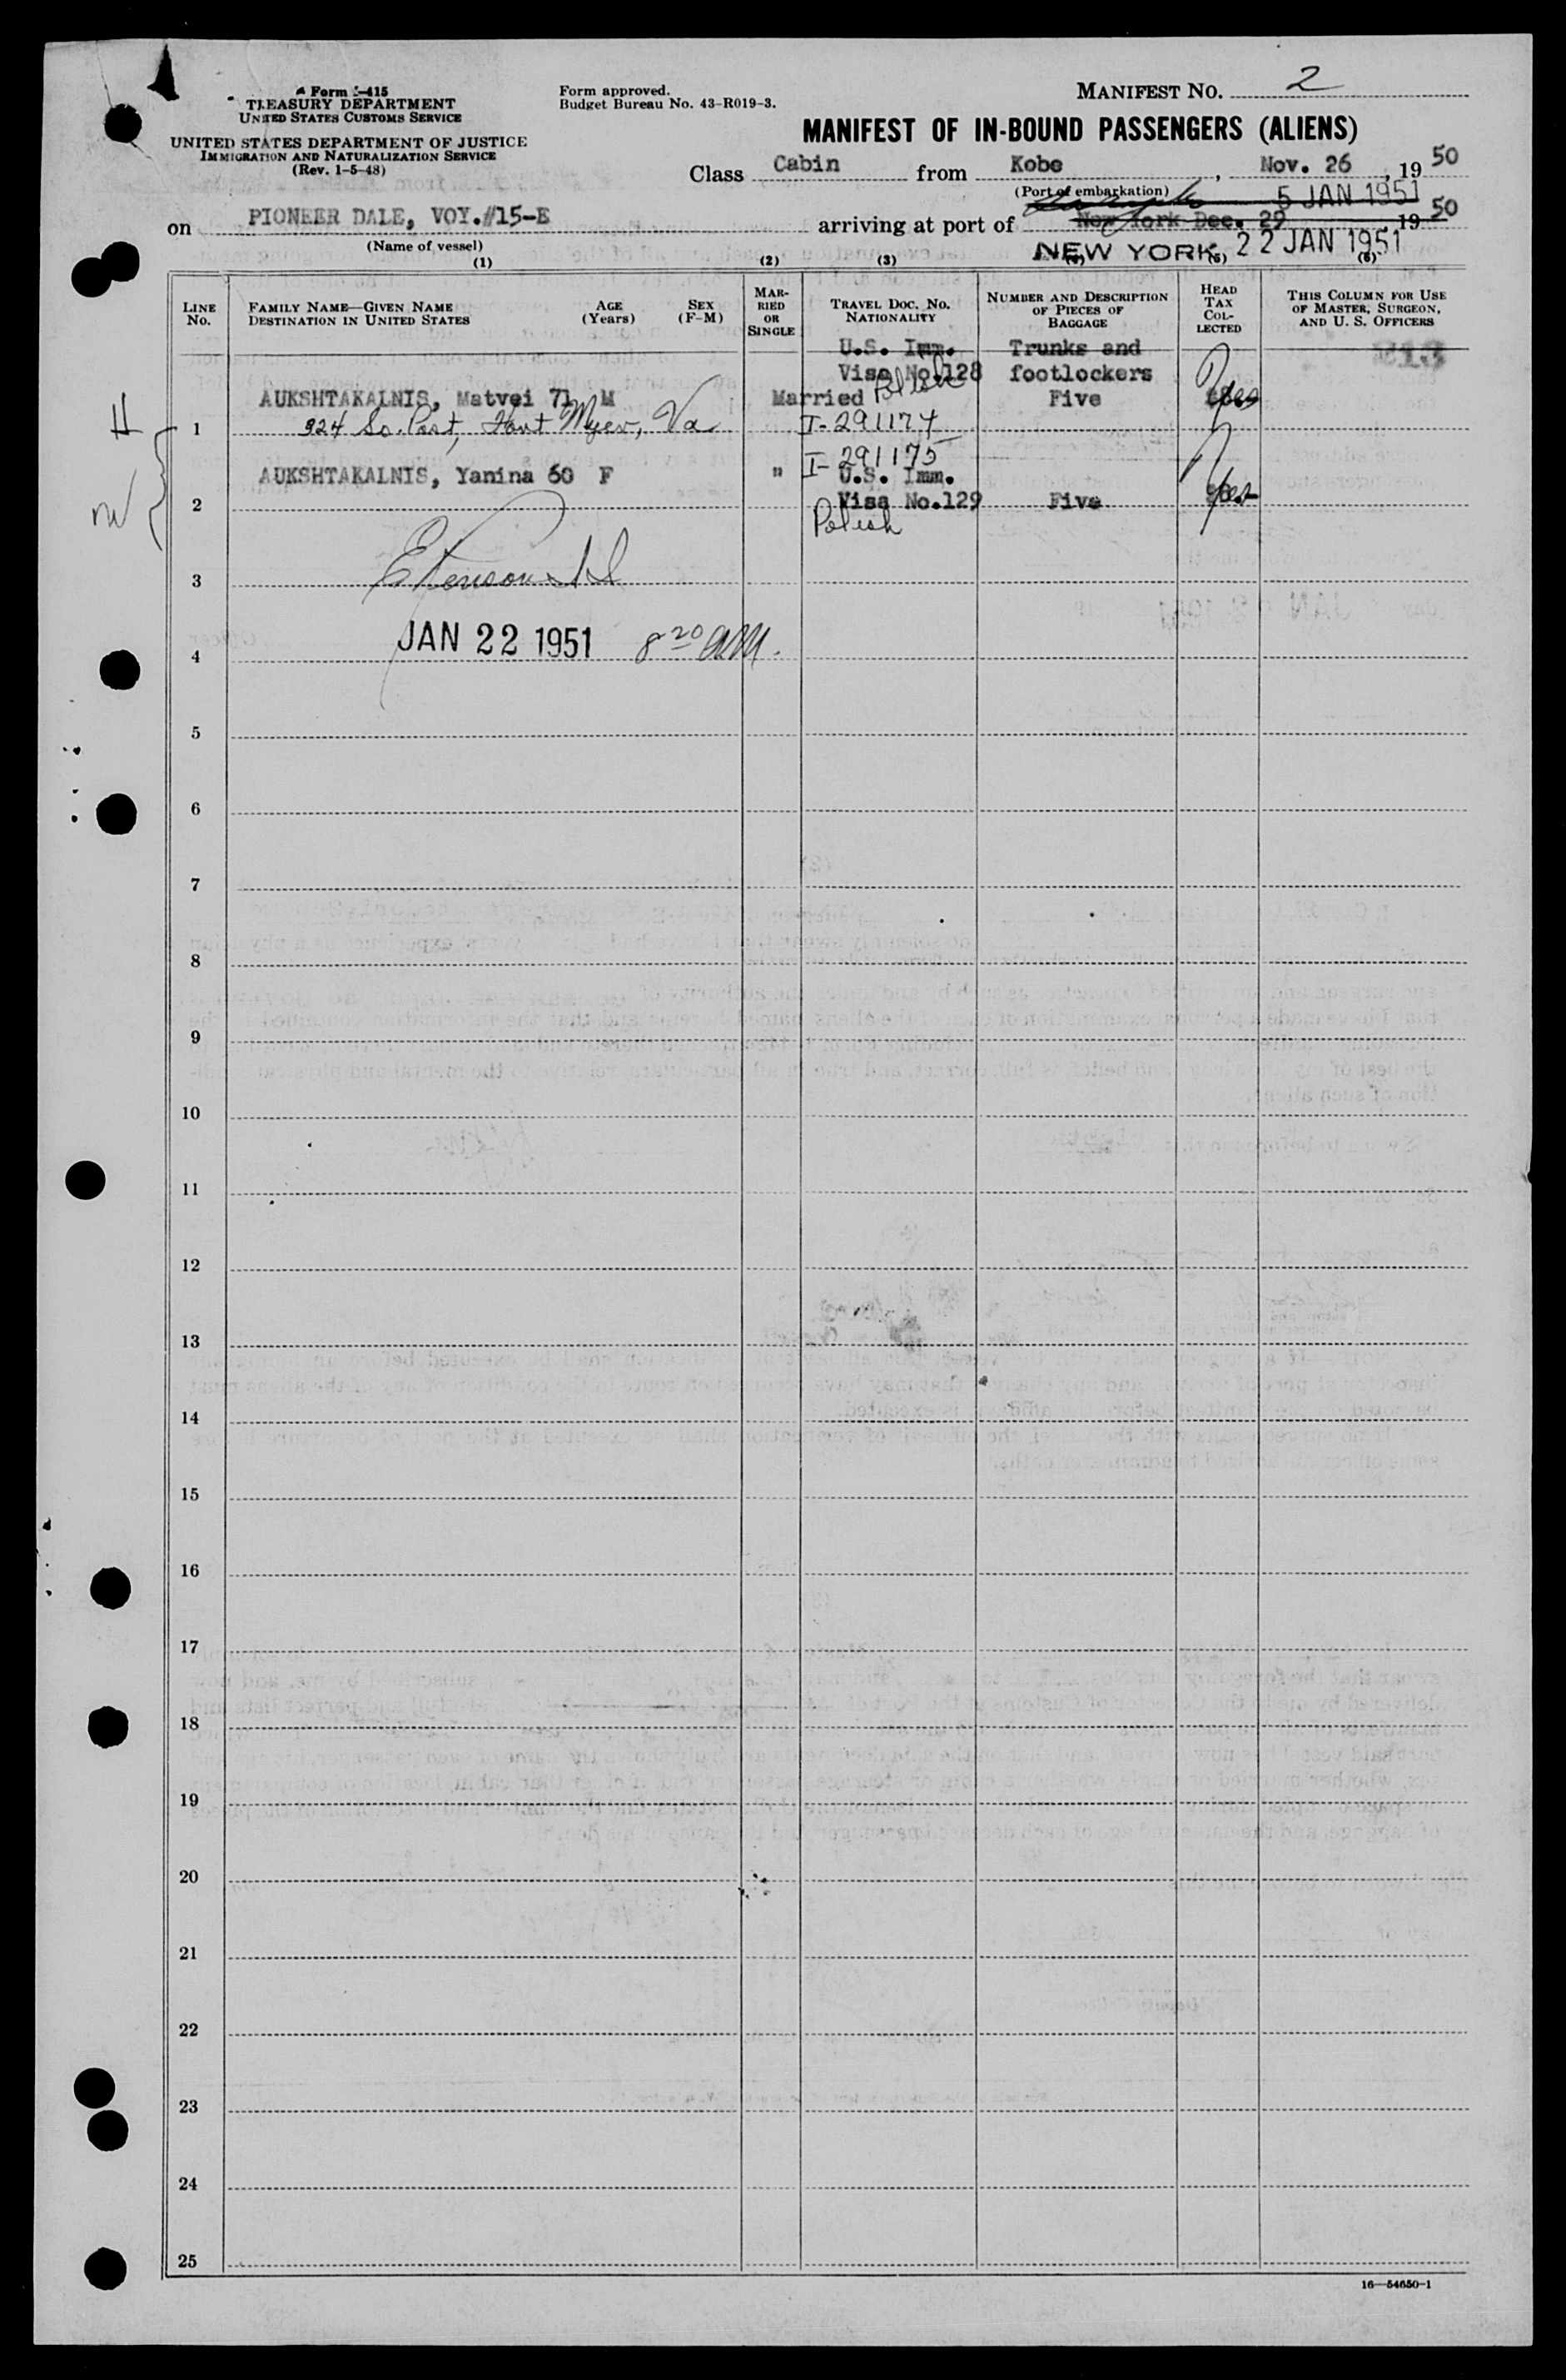 Form I-415
TREASURY DEPARTMENT
UNITED STATES CUSTOMS SERVICE
UNITED STATES DEPARTMENT OF JUSTICE
IMMIGRATION AND NATURALIZATION SERVICE
(Rev. 1-5-48)
Form approved.
Budget Bureau No. 43-R019-3.
MANIFEST NO. 2
MANIFEST OF IN-BOUND PASSENGERS (ALIENS)
Class Cabin from Kobe, Nov. 26, 1950
(Port of embarkation) 5 JAN 1951
on PIONEER DALE, VOY.#15-E arriving at port of New York Dec. 29 1950
(Name of vessel)
NEW YORK 22 JAN 1951
(1) (2) (3) (4) (5) (6)
LINE No.
FAMILY NAME—GIVEN NAME
DESTINATION IN UNITED STATES
AGE (Years)
SEX (F-M)
MARRIED OR SINGLE
TRAVEL DOC. NO. NATIONALITY
NUMBER AND DESCRIPTION OF PIECES OF BAGGAGE
HEAD TAX COLLECTED
THIS COLUMN FOR USE OF MASTER, SURGEON, AND U. S. OFFICERS
U.S. Imm. Trunks and
Visa No.128 footlockers
AUKSHTAKALNIS, Matvei 71 M Married Polish Five
1 924 So. Post, Fort Myer, Va I-291174
I-291175
AUKSHTAKALNIS, Yanina 60 F " U.S. Imm.
2 Visa No.129 Five
Polish
3
JAN 22 1951 8 20 AM.
4
5
6
7
8
9
10
11
12
13
14
15
16
17
18
19
20
21
22
23
24
25
16—54650-1